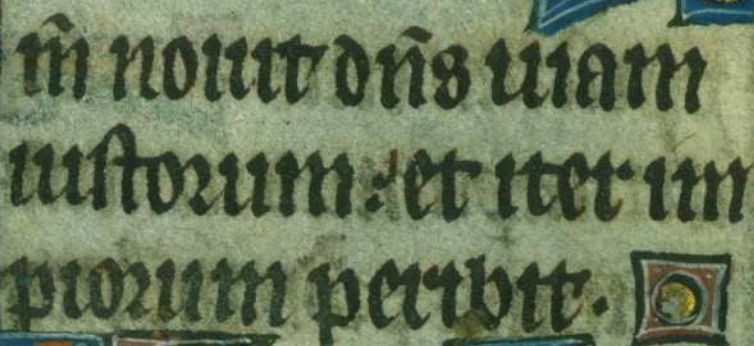 m̄ nouit dn̄s uiam
iustorum: et iter im
piorum peribit.